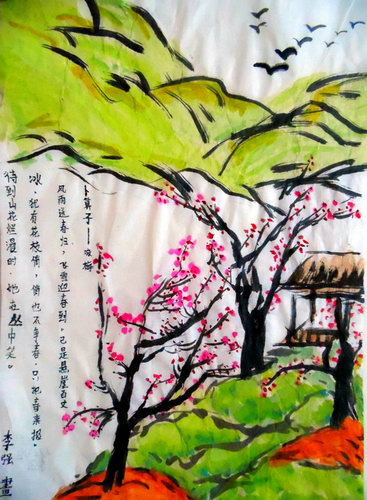 卜算子——咏梅
风雨送春归，飞雪迎春到。已是悬崖百丈
冰，犹有花枝俏，俏也不争春，只把春来报。
待到山花烂漫时，她在丛中笑。
李强 畫